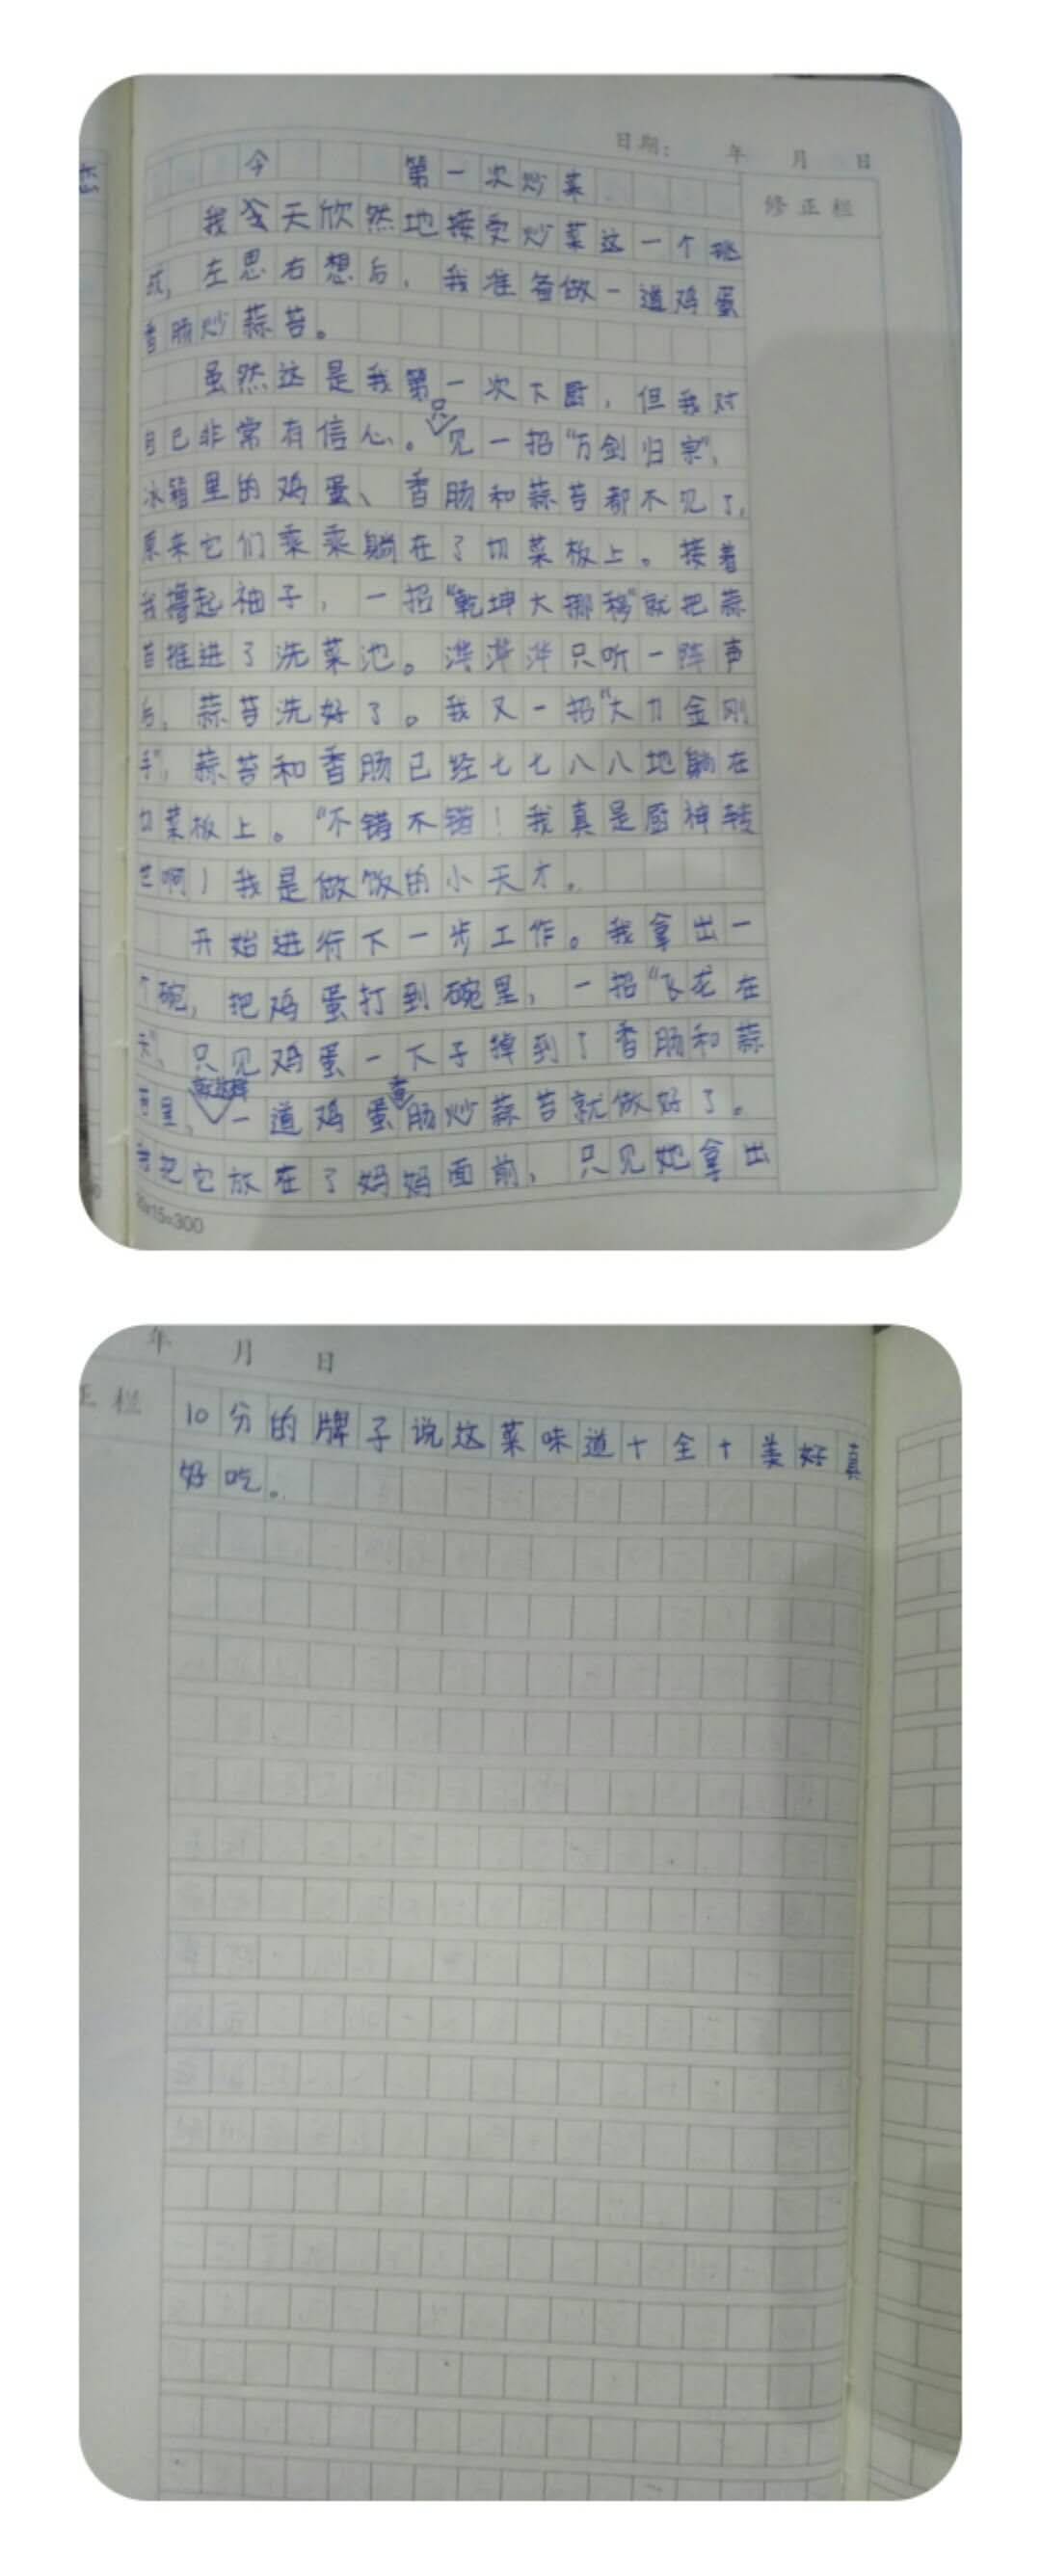 日期： 年 月 日
今 第一次炒菜
修正栏
我今天欣然地接受炒菜这一个挑
战，左思右想后，我准备做一道鸡蛋
香肠炒蒜苔。
虽然这是我第一次下厨，但我对
自己非常有信心。只见一招“万剑归宗”，
冰箱里的鸡蛋、香肠和蒜苔都不见了，
原来它们乘乘躺在了切菜板上。接着
我撸起袖子，一招“乾坤大挪移”就把蒜
苔推进了洗菜池。哗哗哗只听一阵声
后，蒜苔洗好了。我又一招“大力金刚
手”，蒜苔和香肠已经七七八八地躺在
切菜板上。“不错不错！我真是厨神转
世啊！我是做饭的小天才。
开始进行下一步工作。我拿出一
个碗，把鸡蛋打到碗里，一招“飞花在
天”，只见鸡蛋一下子掉到了香肠和蒜
苔里，就这样一道鸡蛋香肠炒蒜苔就做好了。
我把它放在了妈妈面前，只见她拿出
20×15=300
年 月 日
正栏
10分的牌子说这菜味道十全十美好真
好吃。